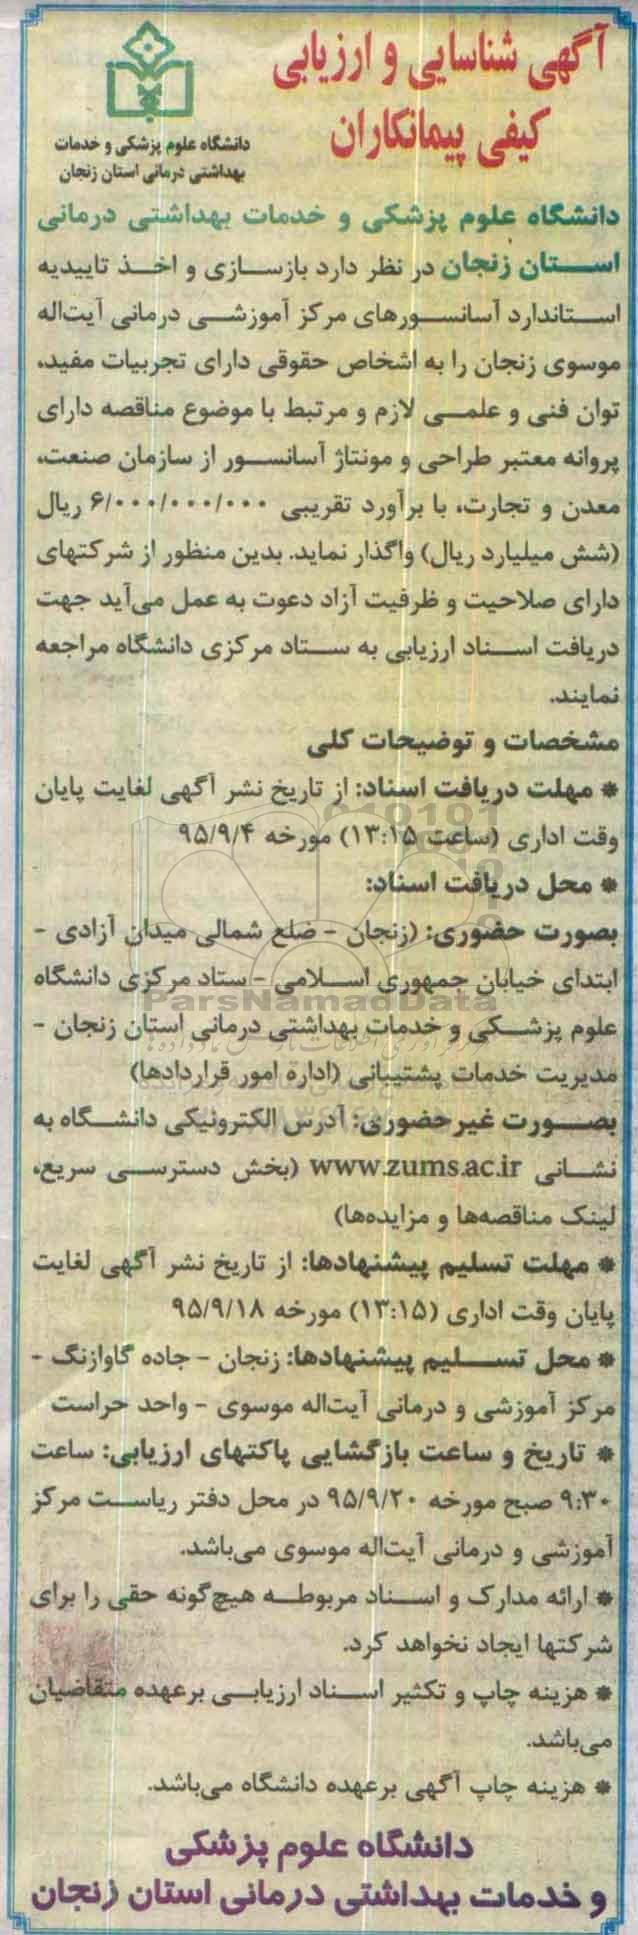 آگهی شناسایی و ارزیابی
کیفی پیمانکاران
دانشگاه علوم پزشکی و خدمات
بهداشتی درمانی استان زنجان
دانشگاه علوم پزشکی و خدمات بهداشتی درمانی
استان زنجان در نظر دارد بازسازی و اخذ تاییدیه
استاندارد آسانسورهای مرکز آموزشی درمانی آیت‌اله
موسوی زنجان را به اشخاص حقوقی دارای تجربیات مفید،
توان فنی و علمی لازم و مرتبط با موضوع مناقصه دارای
پروانه معتبر طراحی و مونتاژ آسانسور از سازمان صنعت،
معدن و تجارت، با برآورد تقریبی ۶/۰۰۰/۰۰۰/۰۰۰ ریال
(شش میلیارد ریال) واگذار نماید. بدین منظور از شرکتهای
دارای صلاحیت و ظرفیت آزاد دعوت به عمل می‌آید جهت
دریافت اسناد ارزیابی به ستاد مرکزی دانشگاه مراجعه
نمایند.
مشخصات و توضیحات کلی
* مهلت دریافت اسناد: از تاریخ نشر آگهی لغایت پایان
وقت اداری (ساعت ۱۳:۱۵) مورخه ۹۵/۹/۴
* محل دریافت اسناد:
بصورت حضوری: (زنجان - ضلع شمالی میدان آزادی -
ابتدای خیابان جمهوری اسلامی - ستاد مرکزی دانشگاه
ParsNamadData
علوم پزشکی و خدمات بهداشتی درمانی استان زنجان -
مدیریت خدمات پشتیبانی (اداره امور قراردادها)
بصورت غیرحضوری: آدرس الکترونیکی دانشگاه به
نشانی www.zums.ac.ir (بخش دسترسی سریع،
لینک مناقصه‌ها و مزایده‌ها)
* مهلت تسلیم پیشنهادها: از تاریخ نشر آگهی لغایت
پایان وقت اداری (۱۳:۱۵) مورخه ۹۵/۹/۱۸
* محل تسلیم پیشنهادها: زنجان - جاده گاوازنگ -
مرکز آموزشی و درمانی آیت‌اله موسوی - واحد حراست
* تاریخ و ساعت بازگشایی پاکتهای ارزیابی: ساعت
۹:۳۰ صبح مورخه ۹۵/۹/۲۰ در محل دفتر ریاست مرکز
آموزشی و درمانی آیت‌اله موسوی می‌باشد.
* ارائه مدارک و اسناد مربوطه هیچ‌گونه حقی را برای
شرکتها ایجاد نخواهد کرد.
* هزینه چاپ و تکثیر اسناد ارزیابی برعهده متقاضیان
می‌باشد.
* هزینه چاپ آگهی برعهده دانشگاه می‌باشد.
دانشگاه علوم پزشکی
و خدمات بهداشتی درمانی استان زنجان